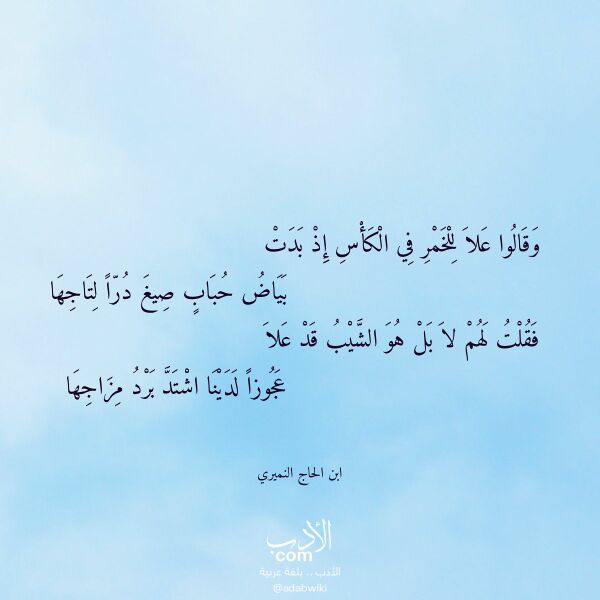 وَقَالُوا عَلاَ لِلْخَمْرِ فِي الْكَأْسِ إِذْ بَدَتْ
بَيَاضُ حُبَابٍ صِيغَ دُرّاً لِتَاجِهَا
فَقُلْتُ لَهُمْ لاَ بَلْ هُوَ الشَّيْبُ قَدْ عَلاَ
عَجُوزاً لَدَيْنَا اشْتَدَّ بَرْدُ مِزَاجِهَا
ابن الحاج النميري
الأدب
.com
الأدب .. بلغة عربية
@adabwiki